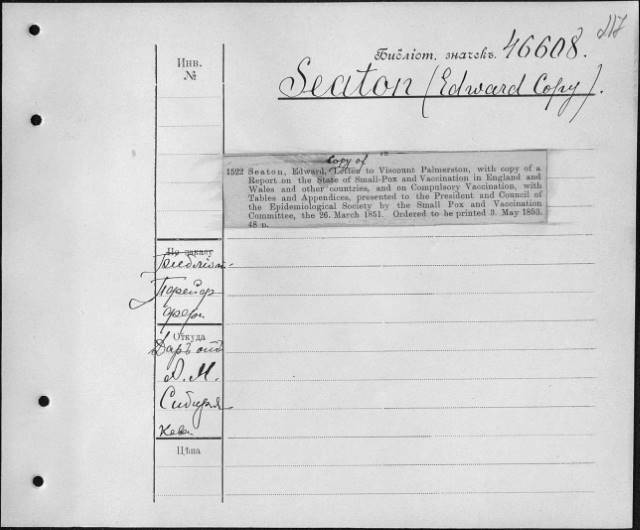 217
Библіот. значекъ. 46608.
Инв.
№
Seaton (Edward Copy).
Copy of
1522 Seaton, Edward, Letter to Viscount Palmerston, with copy of a
Report on the State of Small-Pox and Vaccination in England and
Wales and other countries, and on Compulsory Vaccination, with
Tables and Appendices, presented to the President and Council of
the Epidemiological Society by the Small Pox and Vaccination
Committee, the 26. March 1851. Ordered to be printed 3. May 1853.
48 p.
По заказу
Откуда
Даръ отъ
А. М.
Сибиря
кова
Цѣна